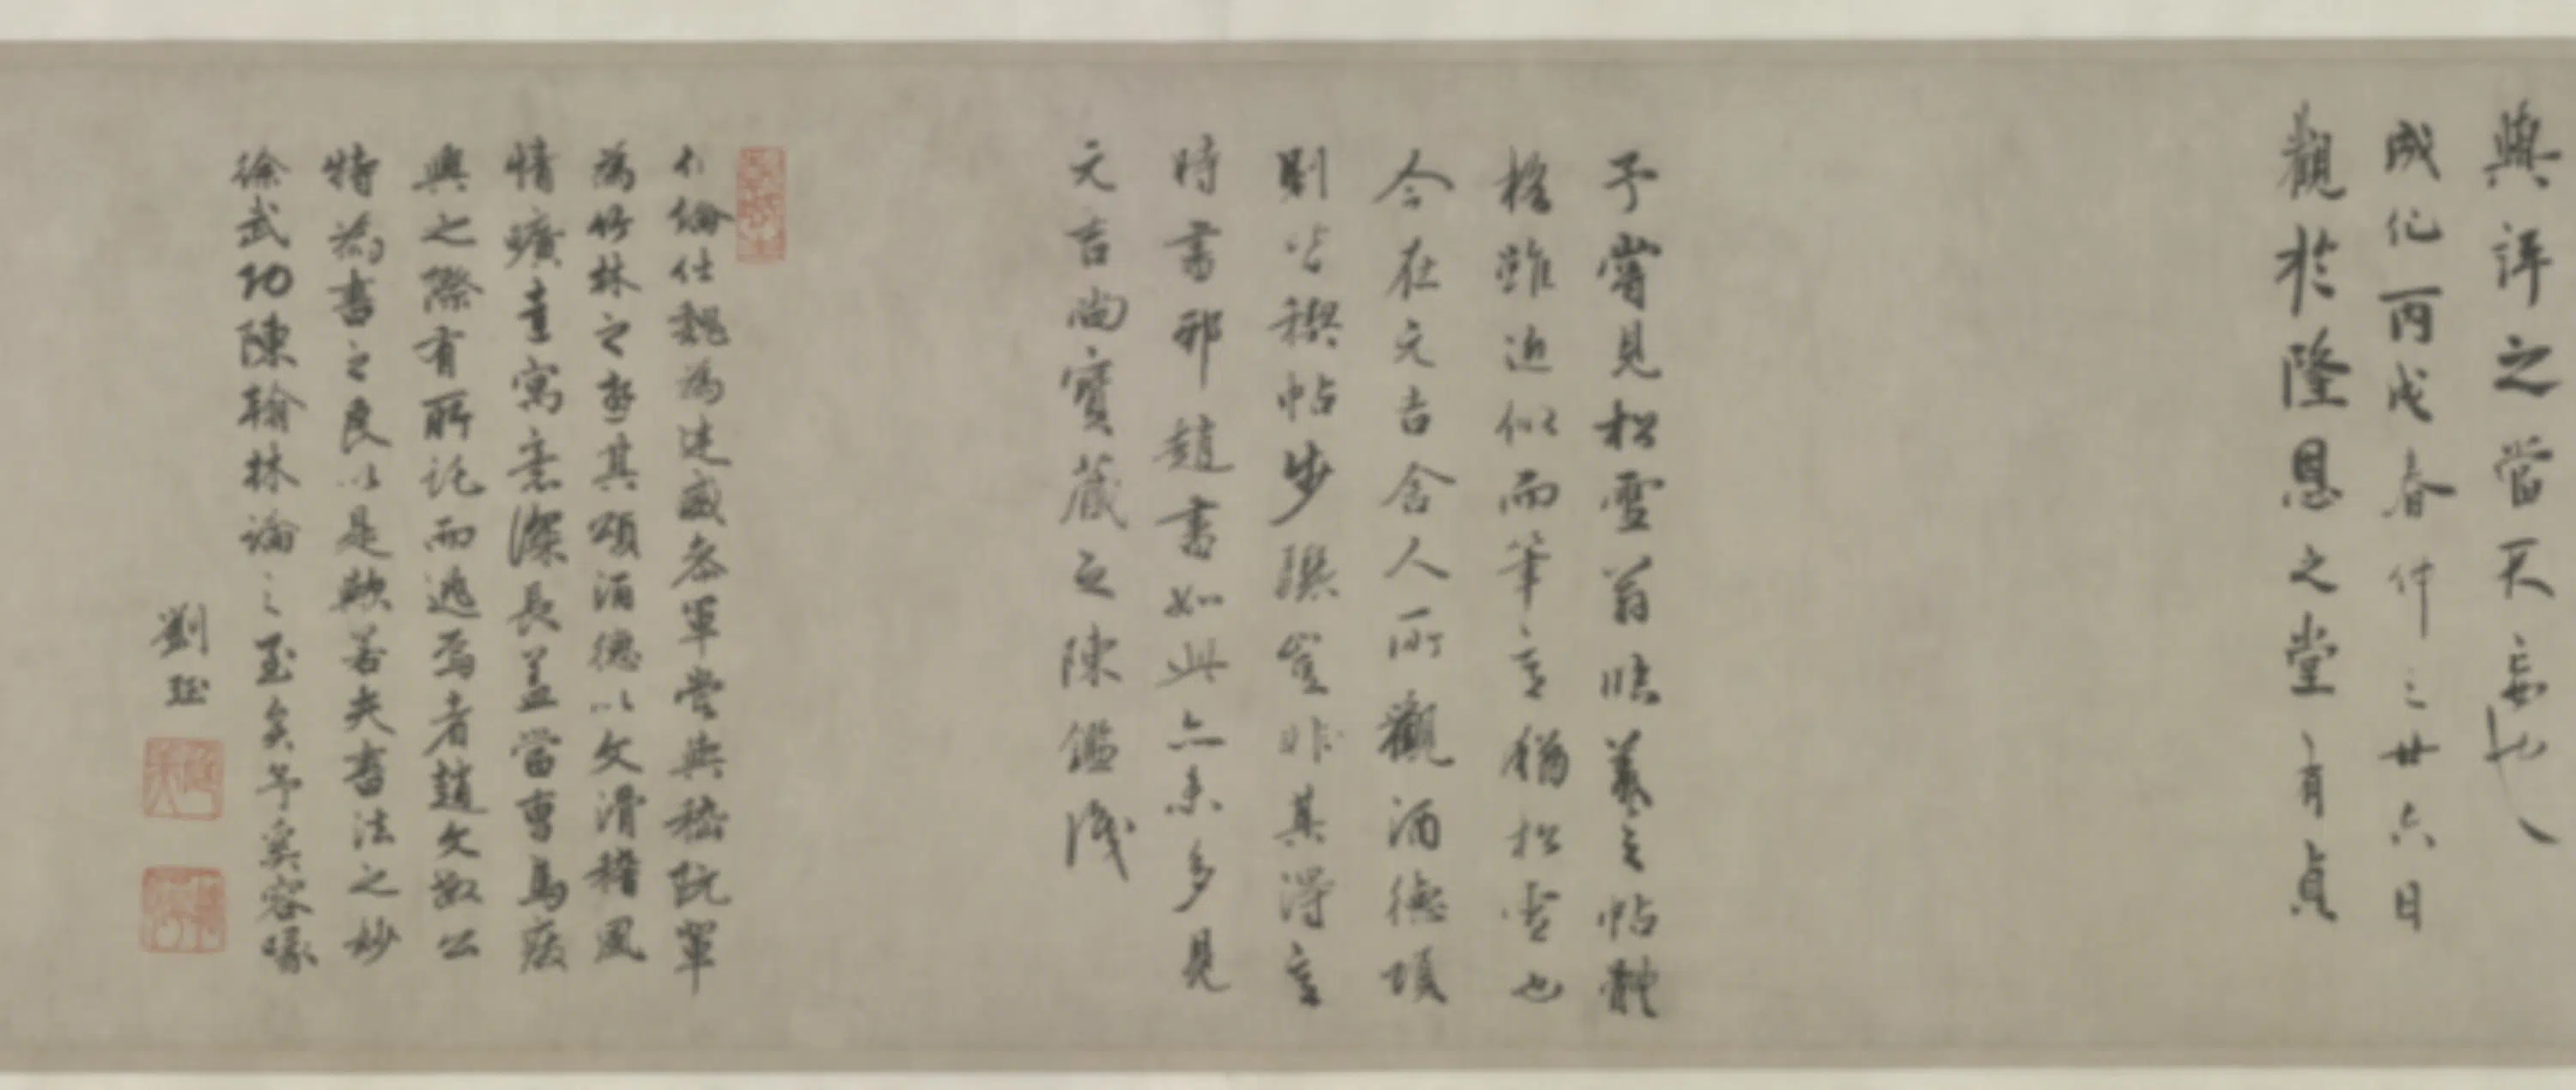 與評之當不忘也
成化丙戌春仲之廿六日
觀於隆恩之堂有貞
予嘗見松雪翁臨羲之帖體
格雖近似而筆意猶松雪也
今在元吉舍人所觀酒德頌
則皆稧帖步驟豈非其得意
時書邪趙書如此亦未多見
元吉尚寶藏之陳鑑識
伯倫仕魏為建威參軍嘗與嵇阮輩
為竹林之遊其頌酒德以文滑稽風
情曠達寓意深長蓋當曹馬廢
興之際有所託而逃焉者趙文敏公
特為書之良以是歟若夫書法之妙
徐武功陳翰林論之至矣予奚容喙
劉珏